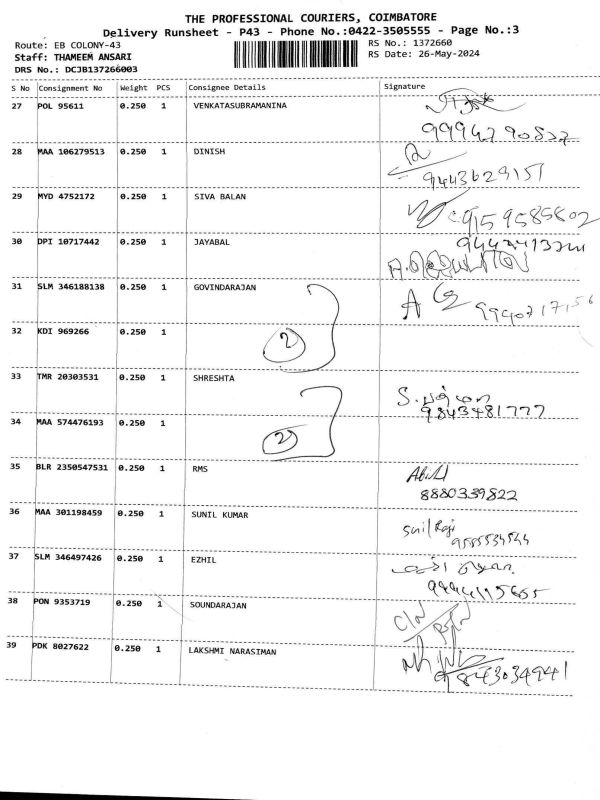 THE PROFESSIONAL COURIERS, COIMBATORE
Delivery Runsheet - P43 - Phone No.:0422-3505555 - Page No.:3
Route: EB COLONY-43 RS No.: 1372660
Staff: THAMEEM ANSARI RS Date: 26-May-2024
DRS No.: DCJB137266003
S No Consignment No Weight PCS Consignee Details Signature
27 POL 95611 0.250 1 VENKATASUBRAMANINA
28 MAA 106279513 0.250 1 DINISH
9443629151
29 MYD 4752172 0.250 1 SIVA BALAN
9159585802
30 DPI 10717442 0.250 1 JAYABAL
31 SLM 346188138 0.250 1 GOVINDARAJAN
32 KDI 969266 0.250 1
2
33 TMR 20303531 0.250 1 SHRESHTA
9843481777
34 MAA 574476193 0.250 1
2
35 BLR 2350547531 0.250 1 RMS
8880339822
36 MAA 301198459 0.250 1 SUNIL KUMAR
37 SLM 346497426 0.250 1 EZHIL
38 PON 9353719 0.250 1 SOUNDARAJAN
39 PDK 8027622 0.250 1 LAKSHMI NARASIMAN
9843034941